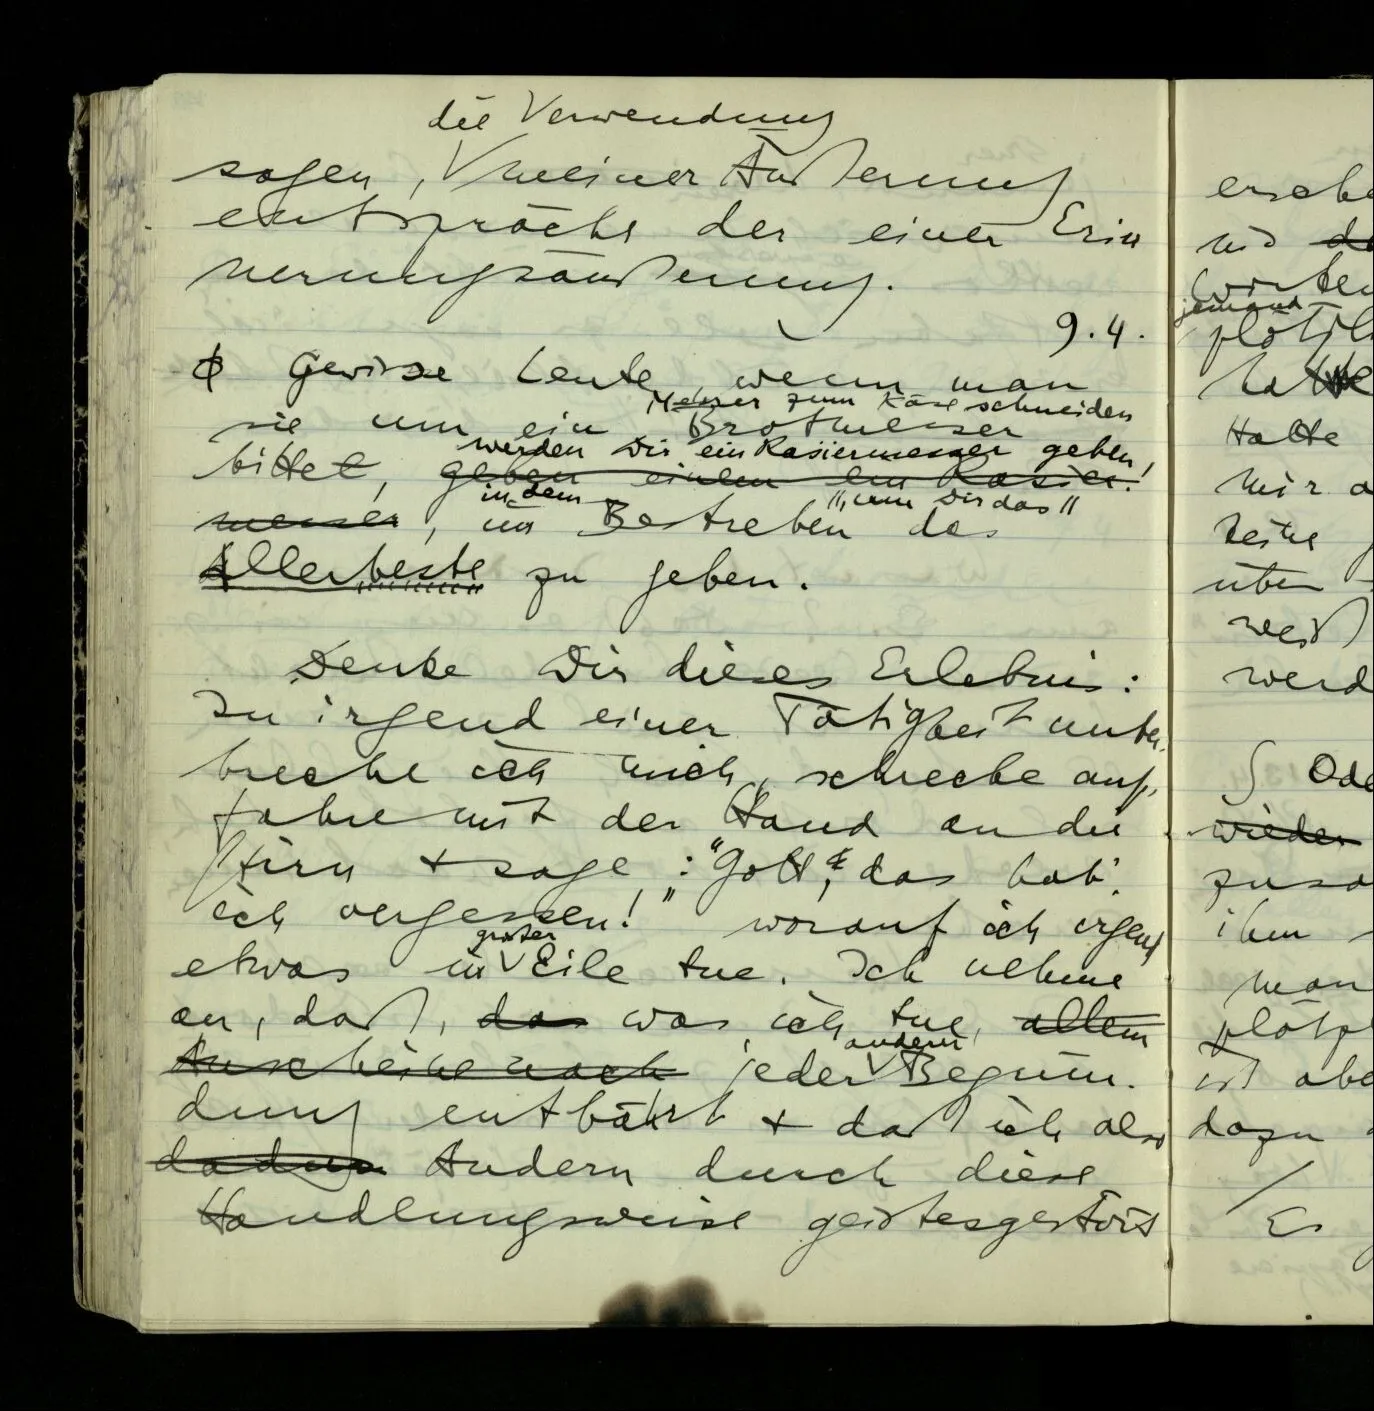 die Verwendung
sagen, meiner Äußerung
entspräche der einer Erin
nerungsäußerung.
9.4.
Gewisse Leute, wenn man
Messer zum Käse schneiden
sie um ein Brotmesser
werden Dir ein Rasiermesser geben,
bittet, geben einem ein Rasier-
in dem „um Dir das"
messer, im Bestreben das
Allerbeste zu geben.
Denke Dir dieses Erlebnis:
In irgend einer Tätigkeit unter-
breche ich mich, schrecke auf,
fahre mit der Hand an die
Stirn + sage: "Gott, das hab'
ich vergessen!" worauf ich irgend
großer
etwas in Eile tue. Ich nehme
an, daß, das was ich tue, allem
andern
Anscheine nach jeder Begrün-
dung entbehrt + daß ich also
Andern durch diese
Handlungsweise geistesgestört
ersche
und
Worten
jemand
plötzli
hatte
Hätte
mir a
keine
über
weiß
werd
Ode
wieder
zusa
ihm
man
plötzl
ist abe
dazu
Es